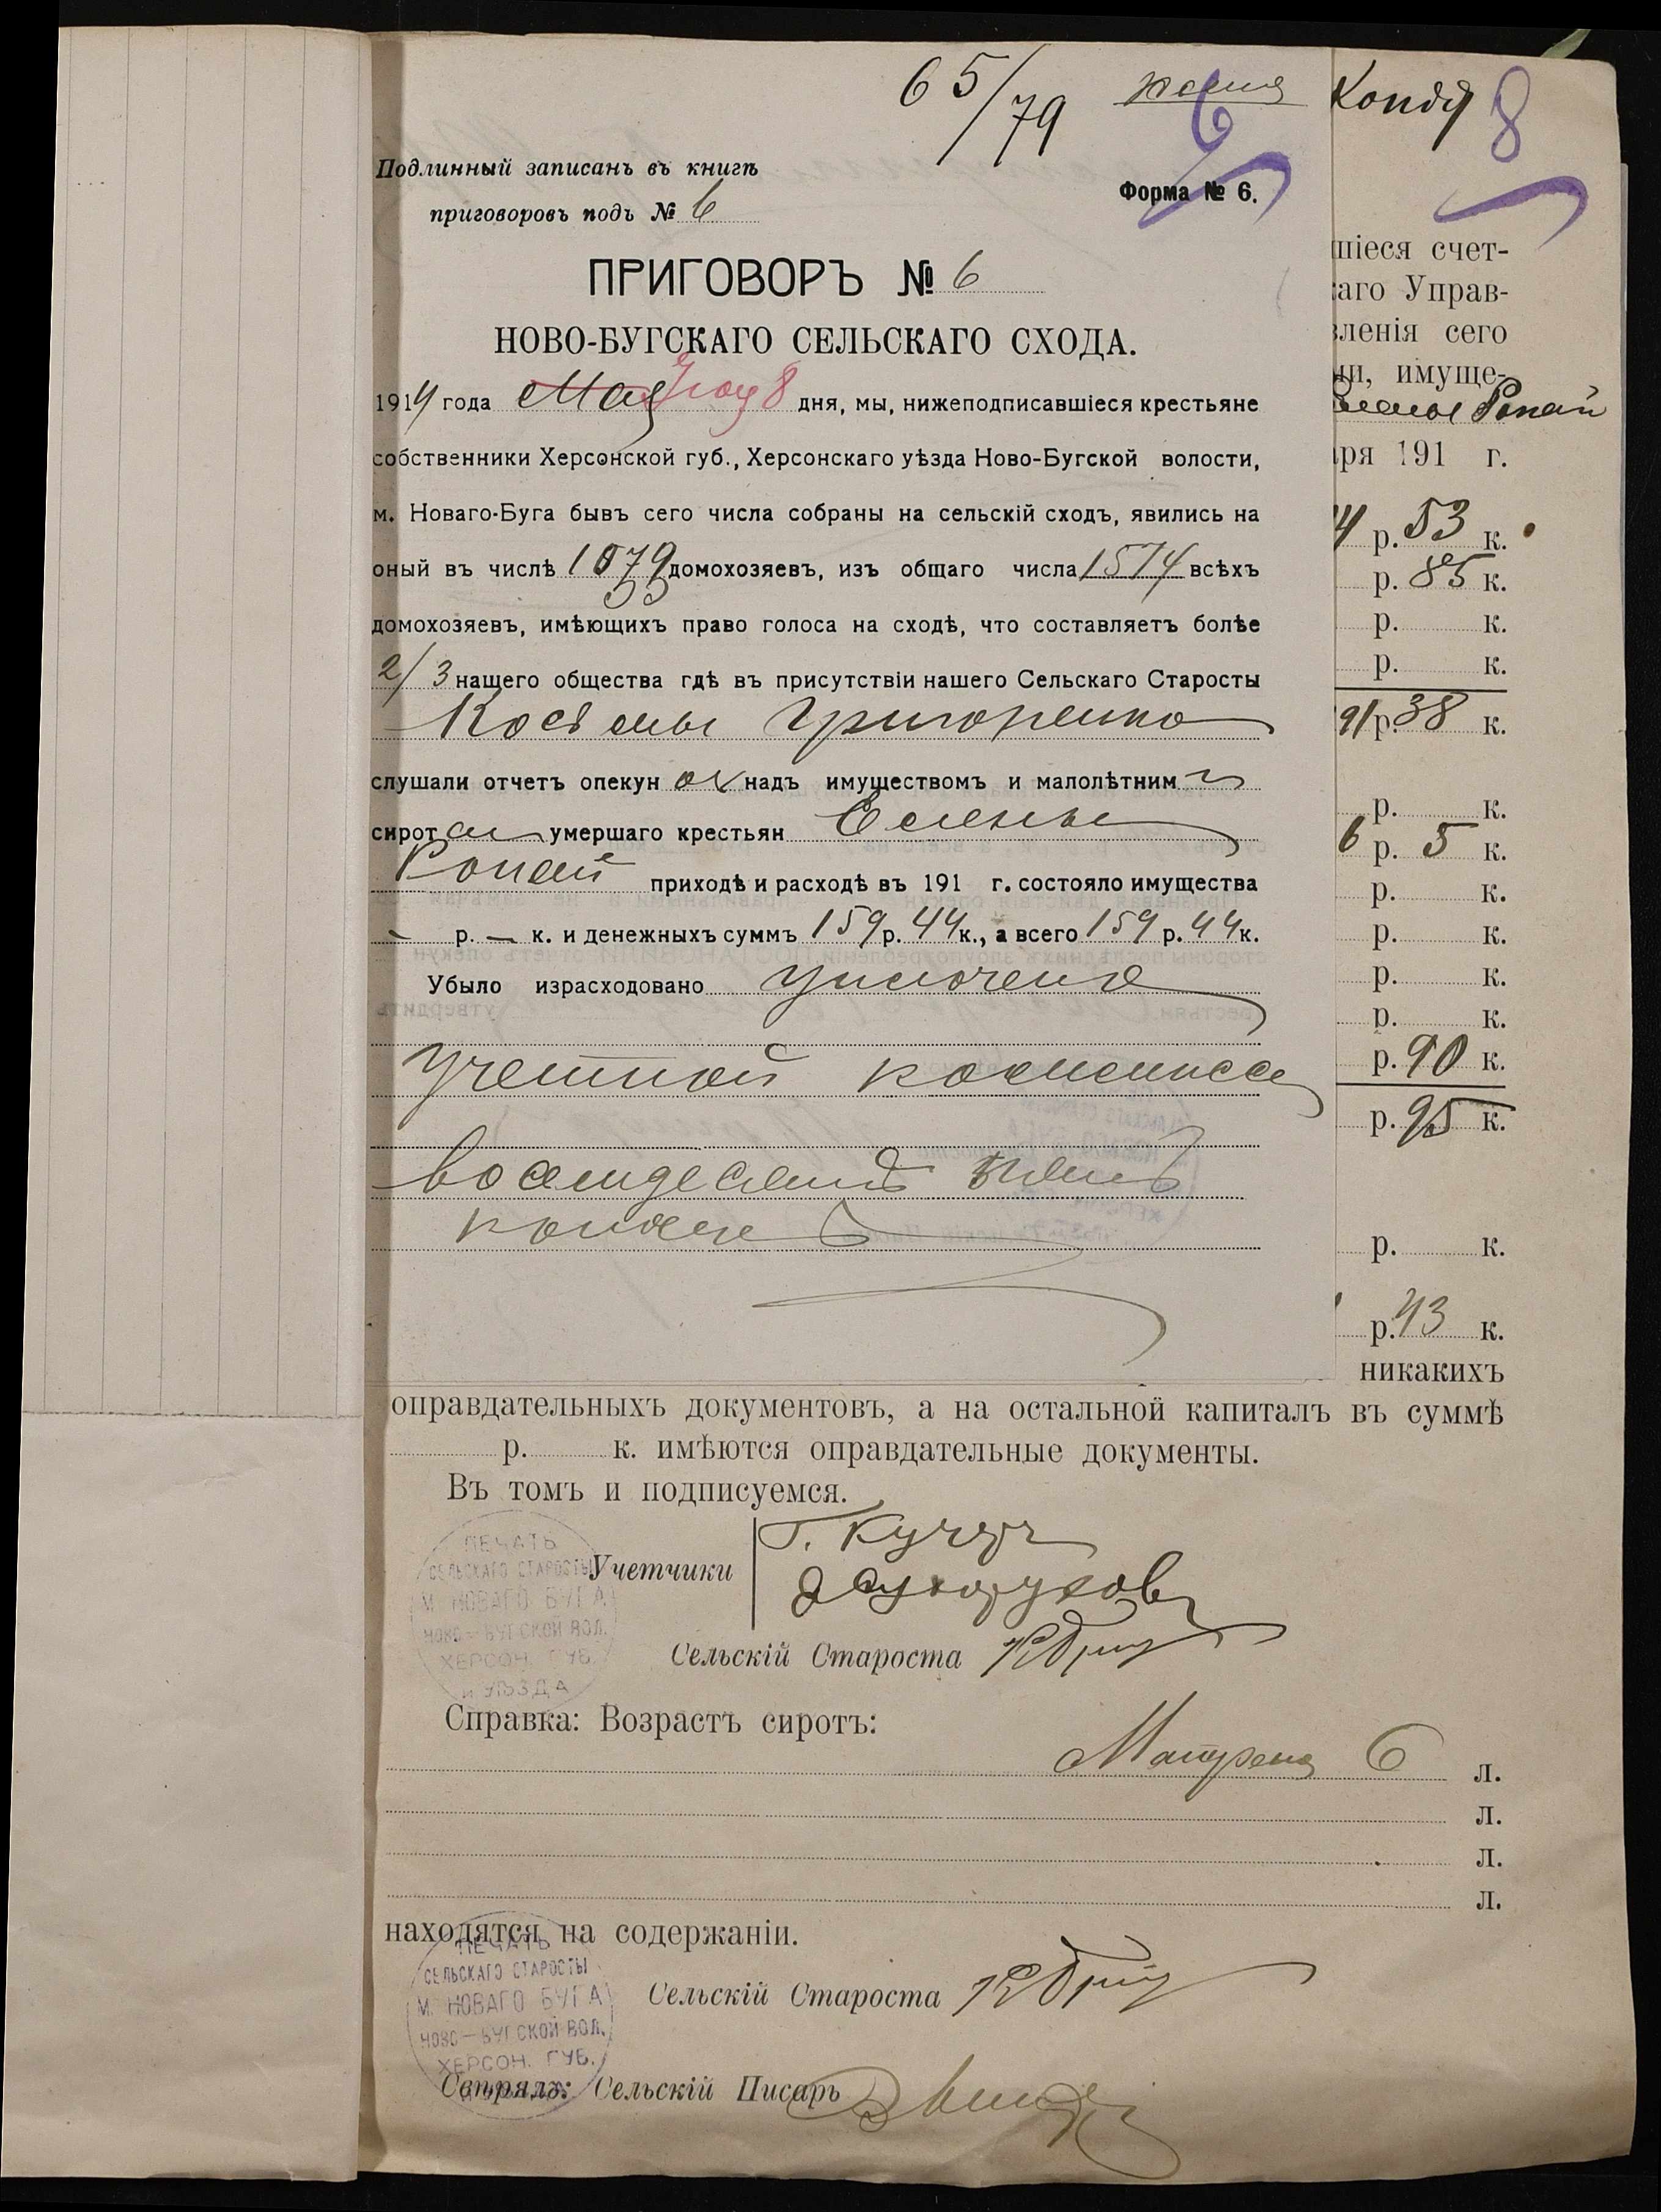 65/79
копия
Копія
8
6
Подлинный записанъ въ книгѣ
приговоровъ подъ № 6
Форма № 6.
ПРИГОВОРЪ № 6
НОВО-БУГСКАГО СЕЛЬСКАГО СХОДА.
1914 года Мая Іюня 8 дня, мы, нижеподписавшіеся крестьяне
собственники Херсонской губ., Херсонскаго уѣзда Ново-Бугской волости,
м. Новаго-Буга бывъ сего числа собраны на сельскій сходъ, явились на
оный въ числѣ 1079 домохозяевъ, изъ общаго числа 1574 всѣхъ
домохозяевъ, имѣющихъ право голоса на сходѣ, что составляетъ болѣе
2/3 нашего общества гдѣ въ присутствіи нашего Сельскаго Старосты
Косьмы Григоренко
слушали отчетъ опекун надъ имуществомъ и малолѣтним
сирот умершаго крестьян Елены
Ропай приходѣ и расходѣ въ 191 г. состояло имущества
- р. - к. и денежныхъ суммъ 159 р. 44 к., а всего 159 р. 44 к.
Убыло израсходовано уплочено
учетной комиссіи
восемдесятъ пять
копѣекъ
шіеся счет-
каго Управ-
вленія сего
ми, имуще-
Елены Ропай
аря 191 г.
4 р. 53 к.
р. 85 к.
р. к.
р. к.
91 р. 38 к.
р. к.
6 р. 5 к.
р. к.
р. к.
р. к.
р. к.
р. 90 к.
р. 95 к.
р. к.
р. 43 к.
никакихъ
оправдательныхъ документовъ, а на остальной капиталъ въ суммѣ
р. к. имѣются оправдательные документы.
Въ томъ и подписуемся.
Учетчики Г. Кучер
Сухоруков
Сельскій Староста
ПЕЧАТЬ
СЕЛЬСКАГО СТАРОСТЫ
М. НОВАГО БУГА
НОВО-БУГСКОЙ ВОЛ.
ХЕРСОН. ГУБ.
И УѢЗДА
Справка: Возрастъ сиротъ:
Матрена 6 л.
л.
л.
л.
находятся на содержаніи.
Сельскій Староста
ПЕЧАТЬ
СЕЛЬСКАГО СТАРОСТЫ
М. НОВАГО БУГА
НОВО-БУГСКОЙ ВОЛ.
ХЕРСОН. ГУБ.
Свѣрялъ: Сельскій Писарь